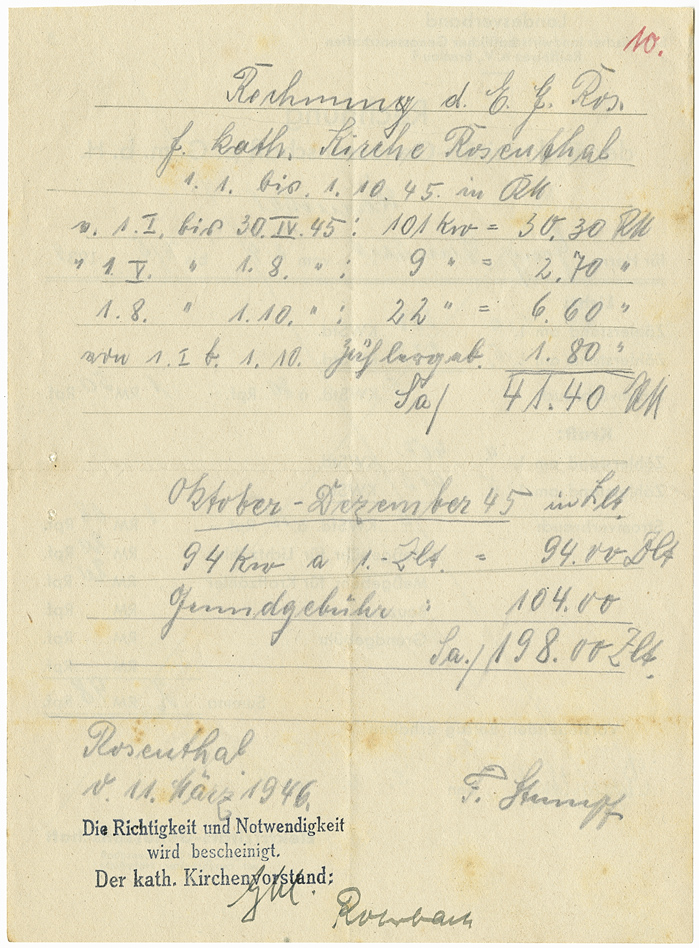 10.
Rechnung d. E. G. Ros.
f. kath. Kirche Rosenthal
1. 1. bis 1. 10. 45. in RM
v. 1. I. bis 30. IV. 45 : 101 kw = 30.30 RM
" 1. V. " 1. 8. " : 9 " = 2.70 "
1. 8. " 1. 10. " : 22 " = 6.60 "
von 1. I b. 1. 10. Zählergeb. 1.80 "
Sa/ 41.40 RM
Oktober - Dezember 45 in Zlt.
94 kw a 1.- Zlt. = 94.00 Zlt
Grundgebühr : 104.00
Sa./ 198.00 Zlt.
Rosenthal
d. 11. März 1946.
F. Stumpf
Die Richtigkeit und Notwendigkeit
wird bescheinigt.
Der kath. Kirchenvorstand:
Rohrbach